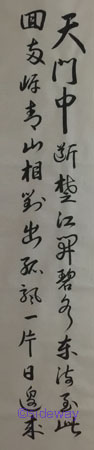 天门中断楚江開碧水东流至此
回两岸青山相對出孤帆一片日边来